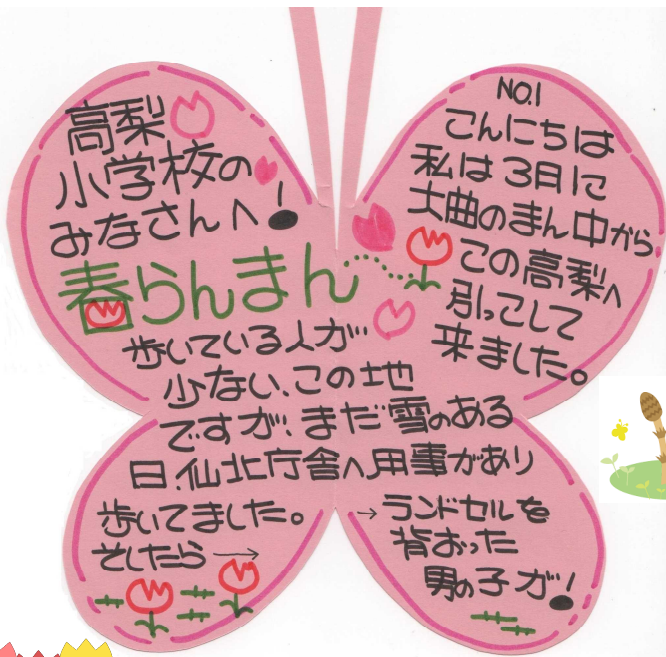 高梨
小学校の
みなさんへ!
春らんまん
NO.1
こんにちは
私は3月に
大曲のまん中から
この高梨へ
引っこして
来ました。
歩いている人が
少ない、この地
ですが、まだ雪のある
日、仙北庁舎へ用事があり
歩いてました。
そしたら→
→ランドセルを
背おった
男の子が!